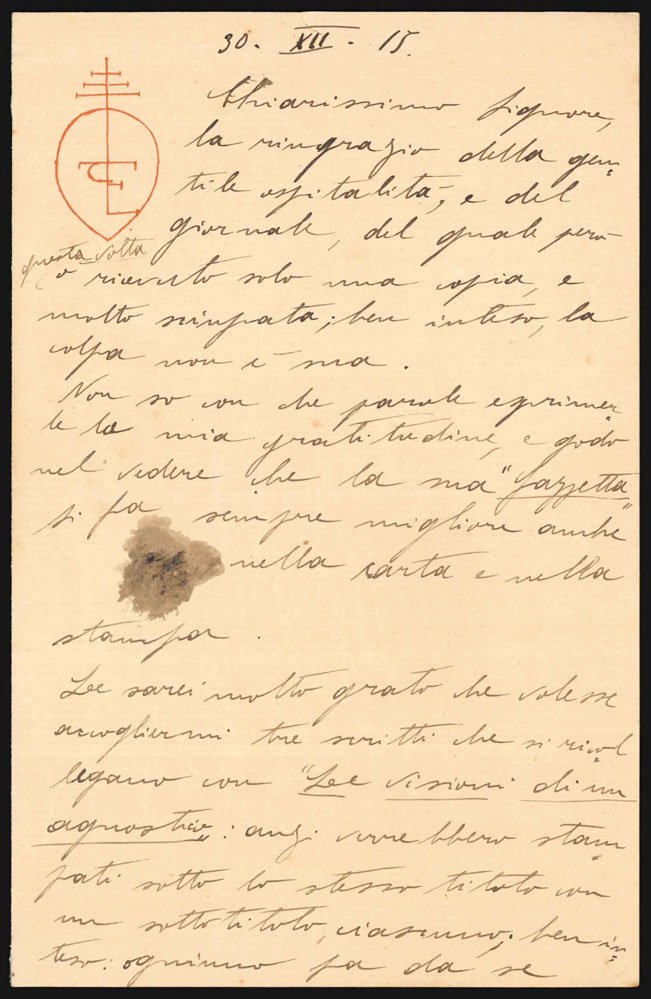 30 - XII - 15.
Chiarissimo Signore,
la ringrazio della gen-
tile ospitalità, e del
giornale, del quale però
questa volta
ò ricevuto solo una copia, e
molto sciupata; ben inteso, la
colpa non è sua.
Non so con che parole esprimer-
le la mia gratitudine, e godo
nel vedere che la sua "Gazzetta"
si fa sempre migliore anche
nella carta e nella
stampa.
Le sarei molto grato che volesse
accogliermi tre scritti che si ricol
legano con "Le visioni di un
agnostico": anzi verrebbero stam
pati sotto lo stesso titolo con
un sottotitolo, ciascuno; ben in-
teso: ognuno fa da se